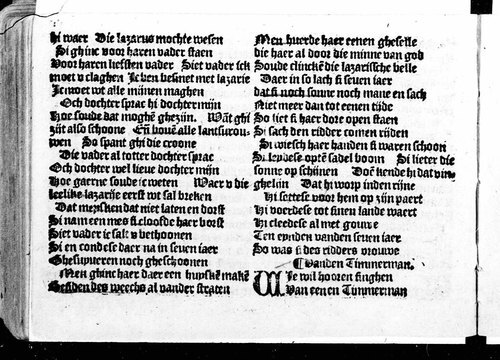 hi waer Die lazarus mochte wesen
Si ghinc voor haren vader staen
Voor haren liefsten vader Siet vader ick
moet v claghen Ic ben besmet met lazarie
Ic moet wt alle minen maghen
Och dochter sprac hi dochter mijn
Hoe soude dat moghē ghezijn. Wāt ghi
zijt also schoone Eñ bouē alle lantsurou-
wen So spant ghi die croone
Die vader al totter dochter sprac
Och dochter wel lieue dochter mijn
Hoe gaerne soude ic weten Waer v die
leelike lazarije eerst wt sal breken
Dat mersken dat niet laten en dorst
Si nam een mes si cloofde haer borst
Siet vader ic salt v bethoonen
Si en conde daer na in seuen iaer
Ghesupueren noch gheschoonen
Men ghinc haer daer een huysken makē
Besiden des weechs al vander straten
Men huerde haer eenen gheselle
die haer al door die minne van god
Soude clinckē die lazarissche belle
Daer in so lach si seuen iaer
dat si noch sonne noch mane en sach
Niet meer dan tot eenen tijde
So liet si haer dore open staen
Si sach den ridder comen rijden
Si wiesch haer handen si waren schoon
Si leydese optē sadel boom Si lieter die
sonne op schijnen Doē kende hi dat vin-
gherlijn Dat hi worp inden rijne
Hi settese voor hem op zijn paert
Hi voerdese tot sinen lande waert
Hi cleedese al met gouwe
Ten eynden vanden seuen iaer
So was si des ridders vrouwe
¶ Vanden Timmerman.
Wie wil hooren singhen
Van eenen Timmerman